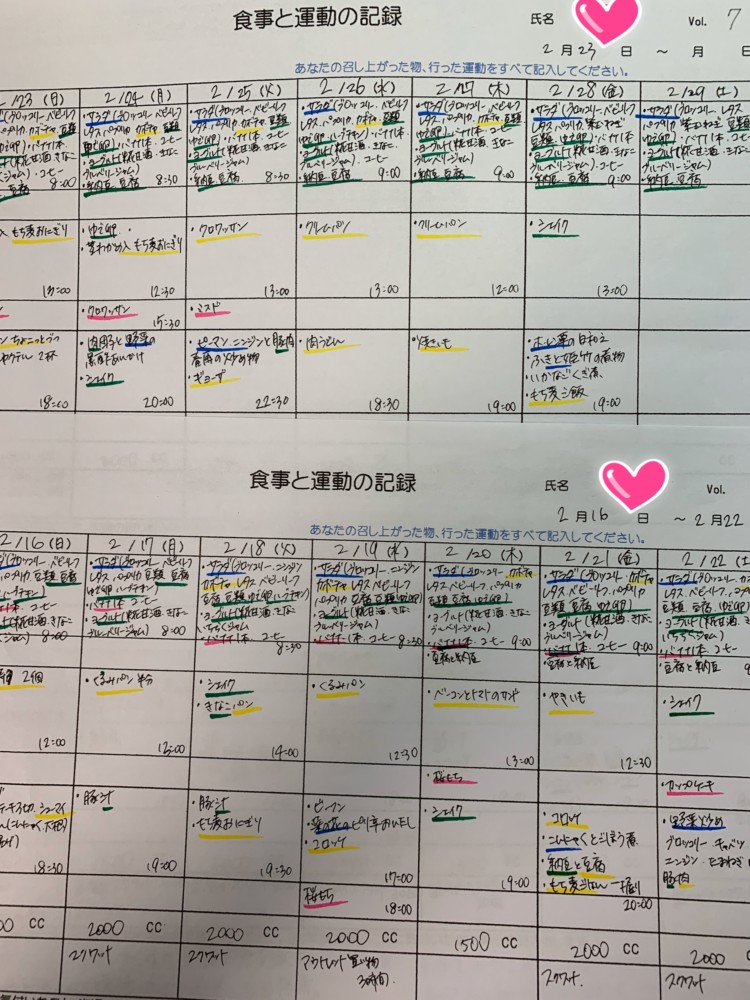 食事と運動の記録
氏名
Vol. 7
2月23日 ～ 月 日
あなたの召し上がった物、行った運動をすべて記入してください。
2/23 (日)
豆類
コーヒー
豆腐 8:00
もち麦おにぎり
13:00
18:00
2/24 (月)
・サラダ(ブロッコリー ベビーリーフ
レタス パプリカ カボチャ 豆類
バナナ1本 コーヒー
・ヨーグルト(糀甘酒 きなこ
ブルーベリージャム)
・納豆 豆腐 8:30
・ゆで卵
・茎わかめ入 もち麦おにぎり
12:30
・クロワッサン
15:30
・肉団子と野菜の
黒酢あんかけ
・シェイク
20:00
2/25 (火)
・サラダ(ブロッコリー ベビーリーフ
レタス パプリカ カボチャ 豆類
ゆで卵) バナナ1本 コーヒー
・ヨーグルト(糀甘酒 きなこ
ブルーベリージャム)
・納豆 豆腐 8:30
・クロワッサン
13:00
・ミスド
・ピーマン ニンジンと豚肉
春雨の炒め物
・ギョーザ
22:30
2/26 (水)
・サラダ(ブロッコリー ベビーリーフ
レタス パプリカ カボチャ 豆類
ゆで卵) バナナ1本
・ヨーグルト(糀甘酒 きなこ
ブルーベリージャム) コーヒー
・納豆 豆腐 9:00
・クリームパン
13:00
・肉うどん
18:30
2/27 (木)
・サラダ(ブロッコリー ベビーリーフ
レタス パプリカ カボチャ 豆類
ゆで卵) バナナ1本 コーヒー
・ヨーグルト(糀甘酒 きなこ
ブルーベリージャム)
・納豆 豆腐 9:00
・クリームパン
12:00
・焼きいも
19:00
2/28 (金)
・サラダ(ブロッコリー ベビーリーフ
レタス パプリカ 紫玉ねぎ
豆類 ゆで卵) バナナ1本
・ヨーグルト(糀甘酒 きなこ
ブルーベリージャム) コーヒー
・納豆 豆腐 9:00
・シェイク
13:00
白和え
・ふきと姫竹の煮物
・いかなごくぎ煮
・もち麦ご飯 19:00
2/29 (土)
・サラダ(ブロッコリー レタス
パプリカ 紫玉ねぎ
豆類 ゆで卵) バナナ1本 コーヒー
・ヨーグルト(糀甘酒 きなこ
ブルーベリージャム)
・納豆 豆腐
食事と運動の記録
氏名
Vol.
2月16日 ～2月22
あなたの召し上がった物、行った運動をすべて記入してください。
2/16 (日)
パプリカ 豆類 豆腐
コーヒー
8:00
2個
12:00
シューマイ
18:30
2/17 (月)
・サラダ(ブロッコリー ベビーリーフ
レタス パプリカ 豆類 豆腐
バナナ1本 コーヒー
・ヨーグルト(糀甘酒 きなこ
ブルーベリージャム) 8:00
・くるみパン 半分
13:00
・豚汁
19:00
2000 CC
スクワット
2/18 (火)
・サラダ(ブロッコリー ニンジン
カボチャ レタス ベビーリーフ
・ヨーグルト(糀甘酒 きなこ
いちぢくジャム
・バナナ1本 コーヒー
8:30
・シェイク
・きなこパン
14:00
・豚汁
・もち麦おにぎり
19:30
2000 CC
スクワット
2/19 (水)
・サラダ(ブロッコリー ニンジン
カボチャ レタス ベビーリーフ
・ヨーグルト(糀甘酒 きなこ
ブルーベリージャム)
・バナナ1本 コーヒー 8:30
・くるみパン
12:30
・ビーフン
・菜の花のピリ辛おひたし
・コロッケ
17:00
桜もち
18:00
2000 CC
アウトレット 買い物
3時間
2/20 (木)
・サラダ(ブロッコリー カボチャ
レタス ベビーリーフ パプリカ
豆類 豆腐 ゆで卵)
・ヨーグルト(糀甘酒 きなこ
ブルーベリージャム)
・バナナ1本 コーヒー 9:00
豆腐と納豆
・ベーコンとトマトのサンド
13:00
・桜もち
・シェイク
19:00
1500 CC
2/21 (金)
・サラダ(ブロッコリー カボチャ
レタス ベビーリーフ パプリカ
豆類 豆腐 ゆで卵)
・ヨーグルト(糀甘酒 きなこ
ブルーベリージャム)
・バナナ1本 コーヒー 9:00
・豆腐と納豆
・やきいも
12:30
・コロッケ
・こんにゃくとごぼう煮
・納豆と豆腐
・もち麦ごはん 一握り
20:00
2000 CC
スクワット
2/22 (土)
・サラダ(ブロッコリー
レタス ベビーリーフ
豆類 豆腐 ゆで卵)
・ヨーグルト(糀甘酒
いちぢくジャム)
・バナナ1本 コーヒー
・豆腐と納豆
・シェイク
・カップケーキ
・野菜炒め
ブロッコリー キャベツ
ニンジン 玉ねぎ
豚肉
2000
スクワット